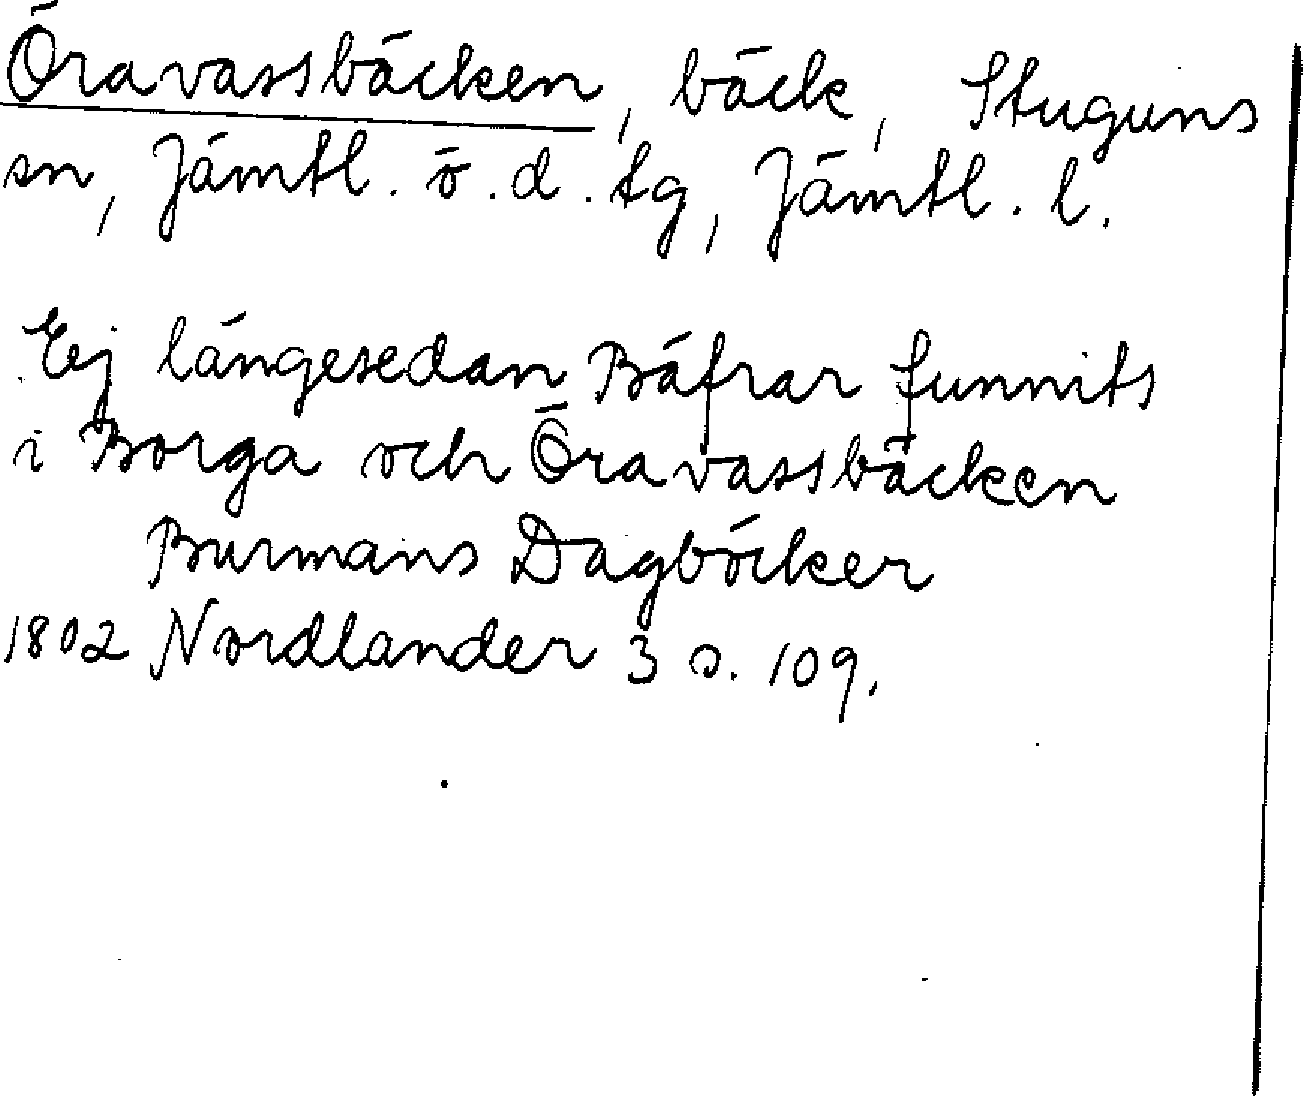 Öravassbäcken, bäck, Stuguns
sn, Jämtl. ö. d. tg, Jämtl. l.
Ej längesedan Bäfrar funnits
i Borga och Öravassbäcken
Burmans Dagböcker
1802 Nordlander 3 s. 109.